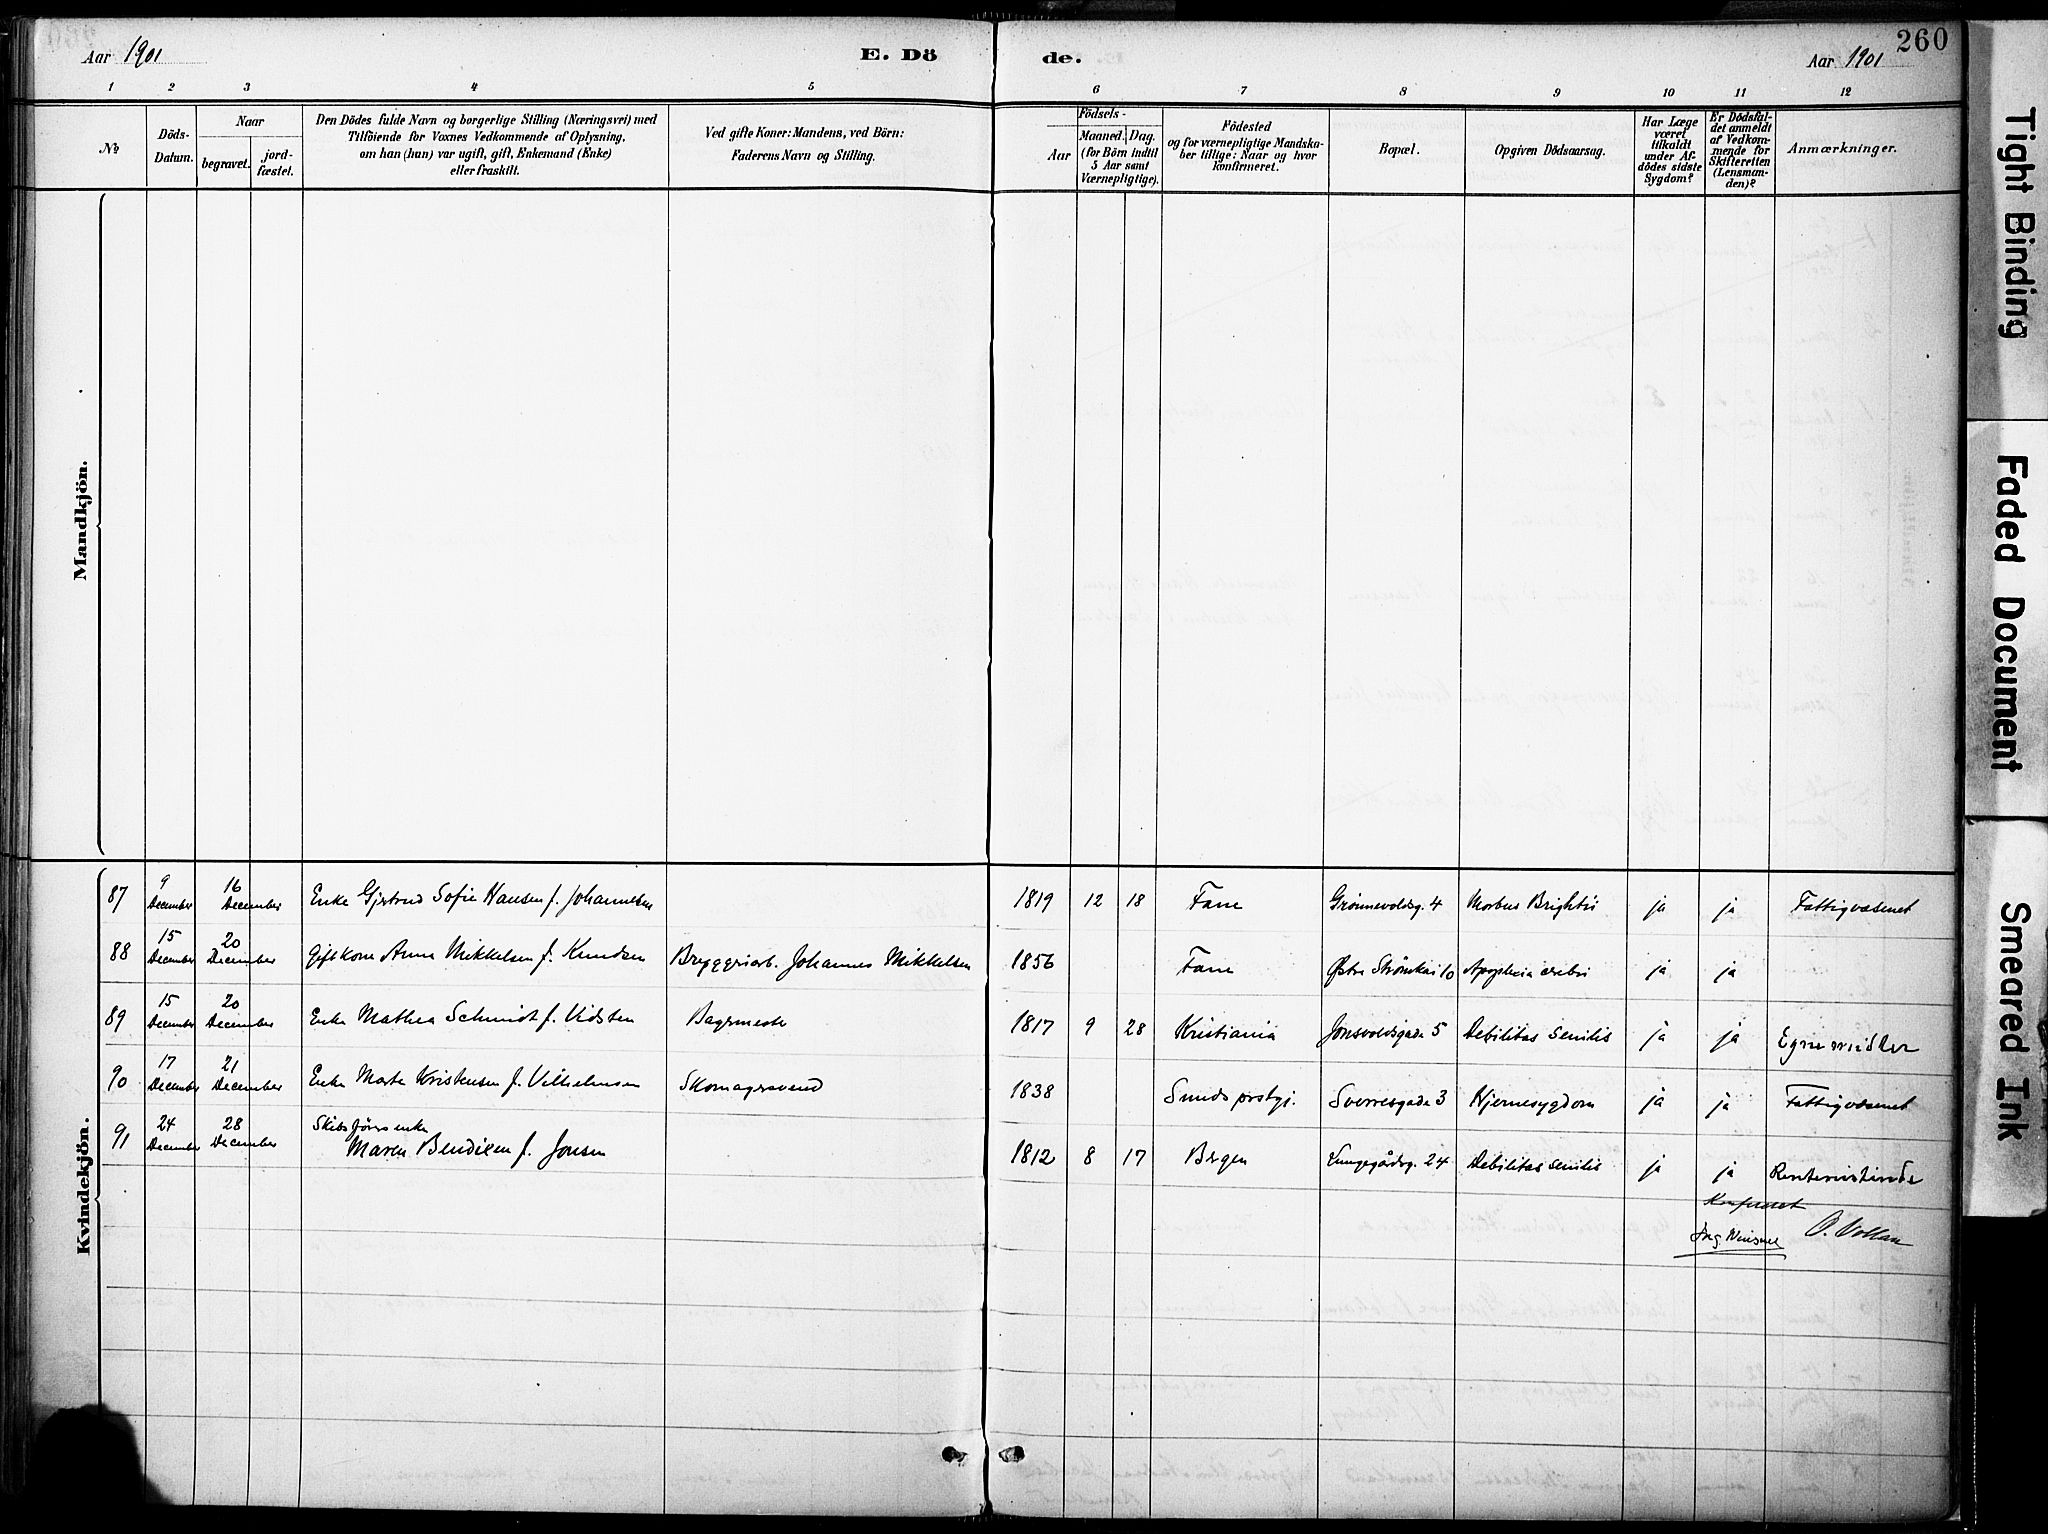 Aar 1901
E. Dö
de.
260
Aar 1901
1 2 3 4 5 6 7 8 9 10 11 12
No
Döds-
Datum.
Naar
begravet.
jord-
fæstet.
Den Dödes fulde Navn og borgerlige Stilling (Næringsvei) med
Tilföiende for Voxnes Vedkommende af Oplysning,
om han (hun) var ugift, gift, Enkemand (Enke)
eller fraskilt.
Ved gifte Koner: Mandens, ved Börn:
Faderens Navn og Stilling.
Födsels-
Aar
Maaned. Dag.
(for Börn indtil
5 Aar samt
Værnepligtige).
Födested
og for værnepligtige Mandska-
ber tillige: Naar og hvor
konfirmeret.
Bopæl.
Opgiven Dödsaarsag.
Har Læge
været
tilkaldt
under Af-
dödes sidste
Sygdom?
Er Dödsfal-
det anmeldt
af Vedkom-
mende for
Skifteretten
(Lensman-
den)?
Anmærkninger.
Mandkjön.
Kvindekjön.
87 9 December 16 December Enke Gjertrud Sofie Hansen f. Johannesen 1819 12 18 Fane Grønnevoldsg. 4 Morbus Brightii ja ja Fattigvæsenet
88 15 December 20 December Gift Kone Anna Mikkelsen f. Knudsen Bryggeriarb. Johannes Mikkelsen 1856 Fane Østre Strømkai 10 Apoplexia cerebri ja ja
89 15 December 20 December Enke Mathea Schmidt f. Vidsten Bagermester 1817 9 28 Kristiania Jonsvoldsgade 5 Debilitas senilis ja ja Egne midler
90 17 December 21 December Enke Marta Kristensen f. Vilhelmsen Skomagersvend 1838 Sunds prstgj. Sverresgade 3 Hjertesygdom ja ja Fattigvæsenet
91 24 December 28 December Skibsførerenke
Maren Bendixen f. Jonsen 1812 8 17 Bergen Lungegårdsg. 24 Debilitas senilis ja ja Renteristinde
Konfereret
O. Vollan
Tight Binding
Faded Document
Smeared Ink